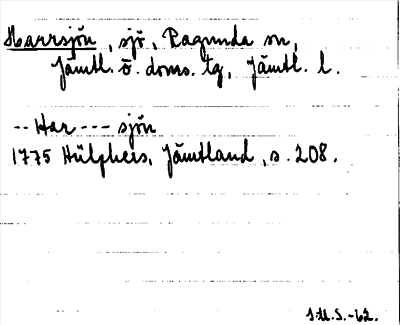 Harrsjön, sjö, Ragunda sn,
Jämtl. ö. doms. tg, Jämtl. l.
-- Har --- sjön
1775 Hülphers, Jämtland, s. 208.
I.U.S. -62.